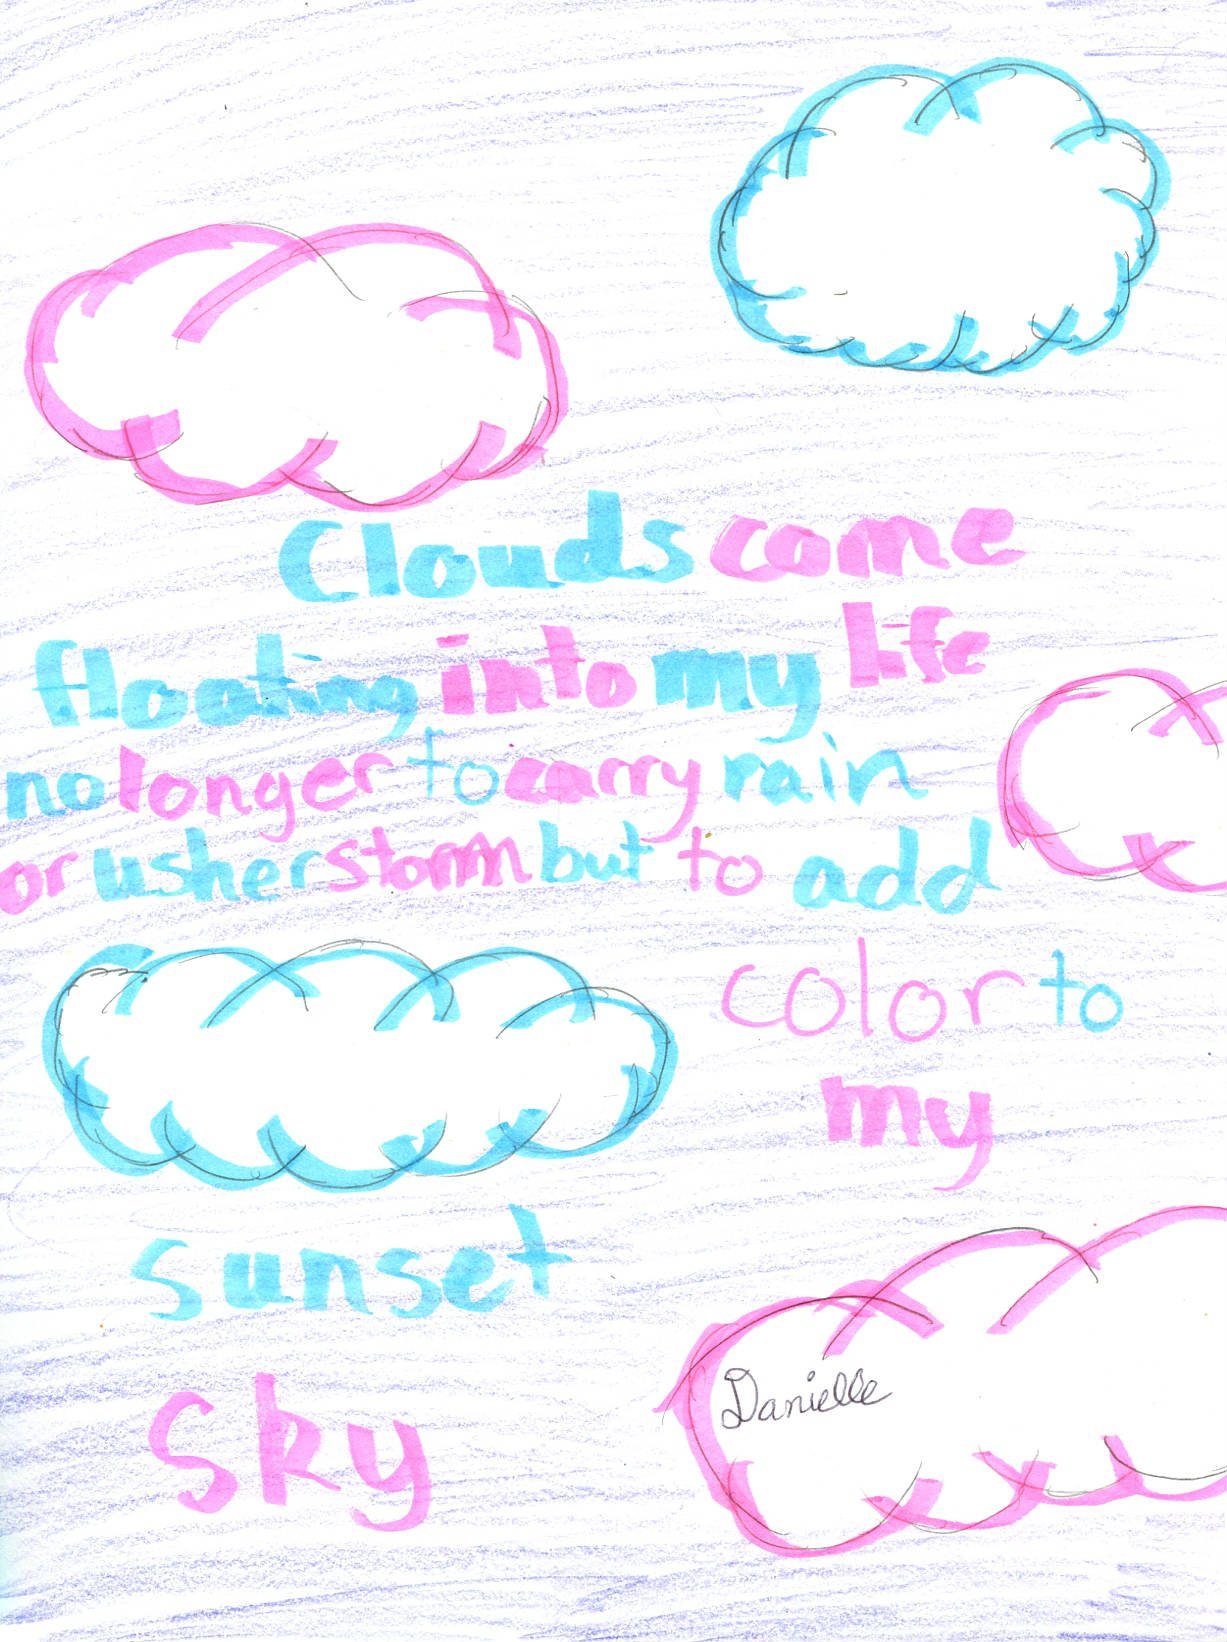 Clouds come
floating into my life
no longer to carry rain
or usher storm but to add
color to
my
sunset
sky
Danielle